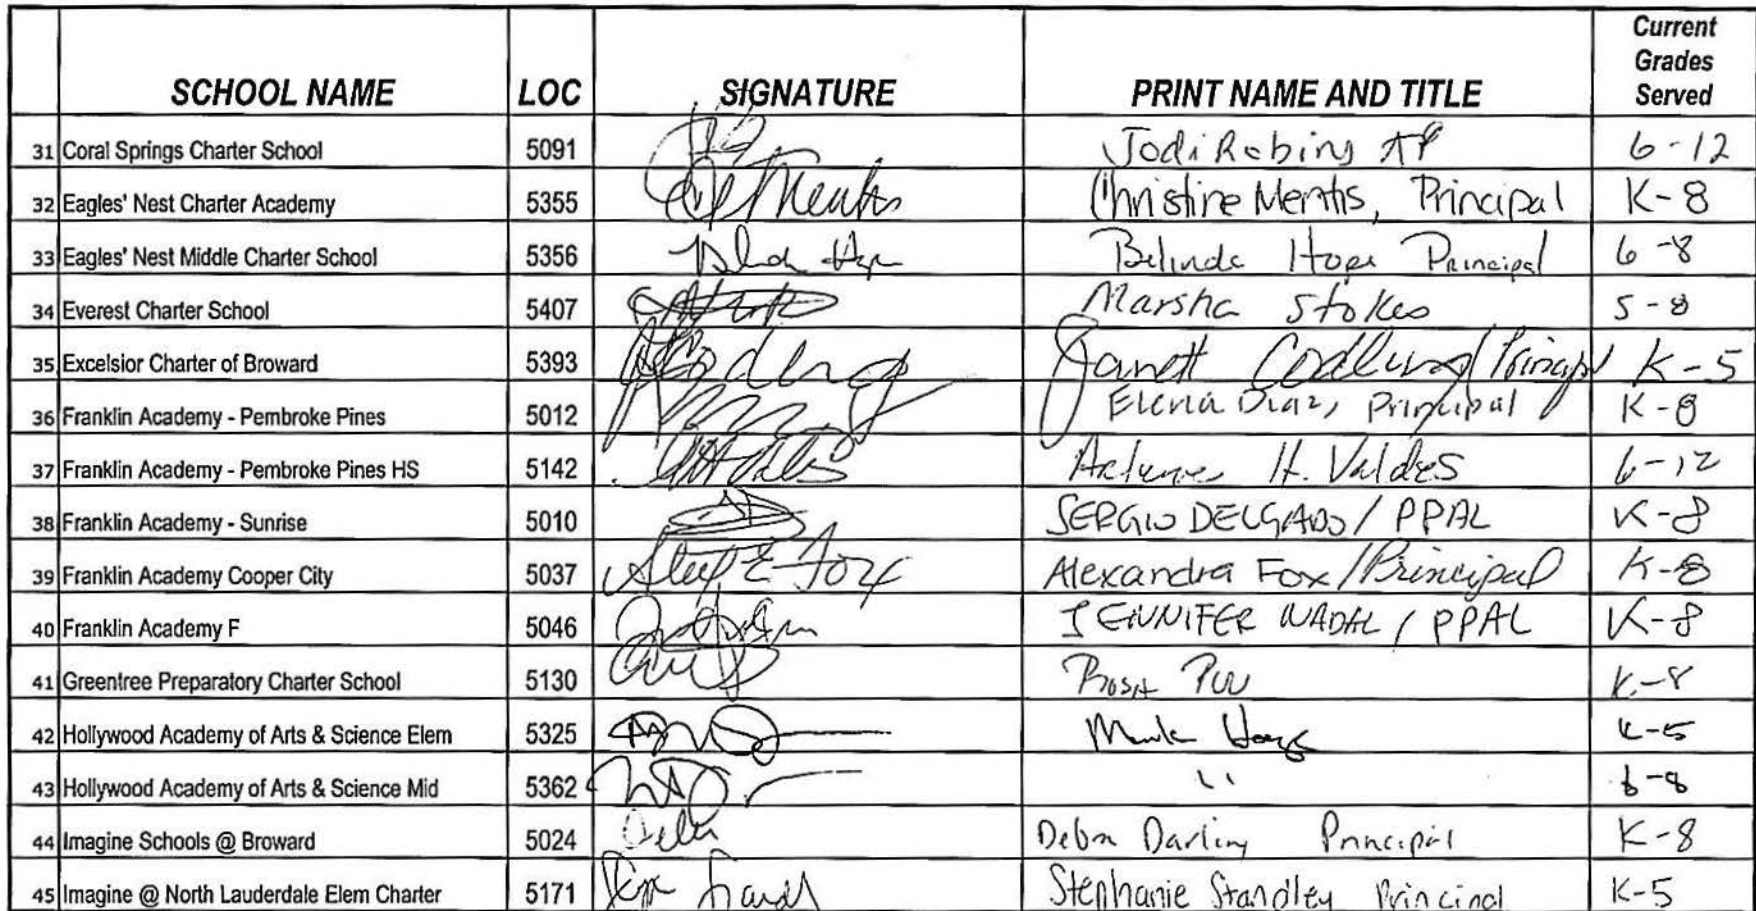 SCHOOL NAME LOC SIGNATURE PRINT NAME AND TITLE Current Grades Served
31 Coral Springs Charter School 5091 Jodi Robins AP 6-12
32 Eagles' Nest Charter Academy 5355 Christine Mentis, Principal K-8
33 Eagles' Nest Middle Charter School 5356 Belinda Hope Principal 6-8
34 Everest Charter School 5407 Marsha Stokes 5-8
35 Excelsior Charter of Broward 5393 Principal K-5
36 Franklin Academy - Pembroke Pines 5012 Elena Diaz, Principal K-8
37 Franklin Academy - Pembroke Pines HS 5142 H. Valdes 6-12
38 Franklin Academy - Sunrise 5010 SERGIO DELGADO / PPAL K-8
39 Franklin Academy Cooper City 5037 Alexandra Fox / Principal K-8
40 Franklin Academy F 5046 JENNIFER NADAL / PPAL K-8
41 Greentree Preparatory Charter School 5130 K-8
42 Hollywood Academy of Arts & Science Elem 5325 K-5
43 Hollywood Academy of Arts & Science Mid 5362 " 6-8
44 Imagine Schools @ Broward 5024 Debra Darling Principal K-8
45 Imagine @ North Lauderdale Elem Charter 5171 Stephanie Standley Principal K-5